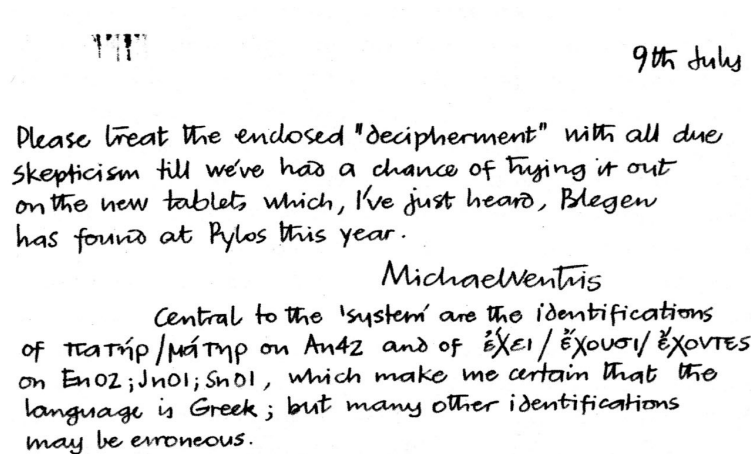 9th July
Please treat the enclosed "decipherment" with all due
skepticism till we've had a chance of trying it out
on the new tablets which, I've just heard, Blegen
has found at Pylos this year.
Michael Ventris
Central to the 'system' are the identifications
of πατήρ/μάτηρ on An42 and of ἔχει/ἔχουσι/ἔχοντες
on En02; Jn01; Sn01, which make me certain that the
language is Greek; but many other identifications
may be erroneous.